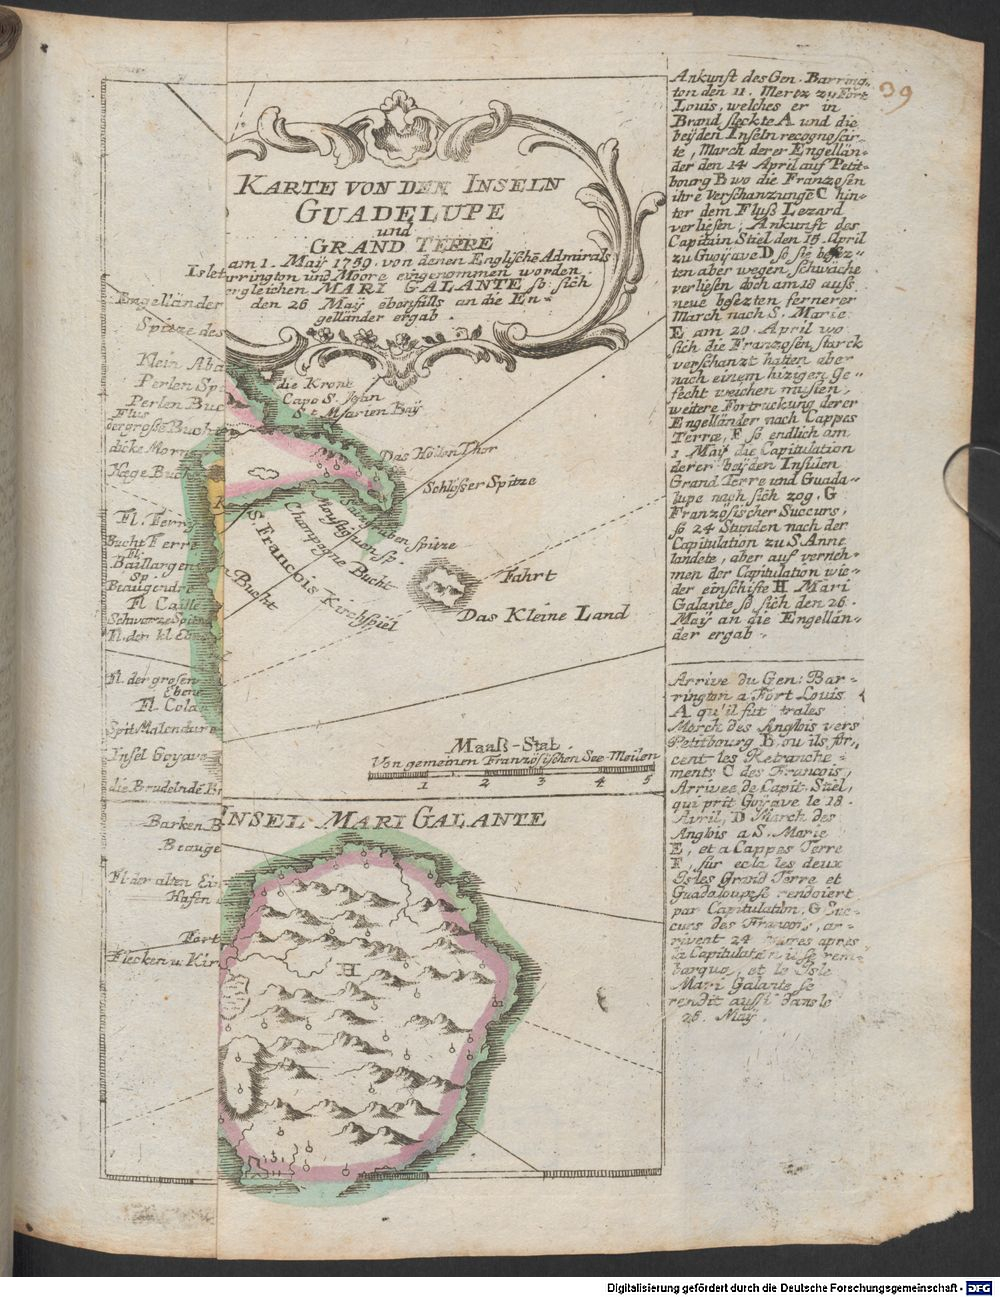 39
KARTE VON DEN INSELN
GUADELUPE
und
GRAND TERRE
am 1. Maÿ 1759. von denen Englische Admirals
rrington und Moore eingenommen worden.
ergleichen MARI GALANTE so sich
den 26 Maÿ ebenfalls an die En-
gelländer ergab.
Engelländer
Spitze des
Klein Aba
Perlen Sp
Perlen Buc
Flus
der große Buch
dicke Morn
Hæge Buch
Fl. Ferry
Bucht Ferre
Fl.
Baillargen
Sp.
Beaugendre
Fl Caille
Schwarze Spitz
Fl. den kl Eben
Fl. der grosen
Ebene
Fl. Cola
Spit Malendure
Insel Goyave
die Brudelnde Br
Barken B
Beauge
Fl. der alten Ein
Hafen
Fort
Flecken u. Kir
die Krone
Capo S. John
St. Marien Baÿ
Das Höllen Thor
Schlösser Spitze
spitze
Champagne Bucht
S. Francois Kirchspiel
Bucht
Fahrt
Das Kleine Land
Maaß-Stab
Von gemeinen Französischen See-Meilen
1 2 3 4 5
INSEL MARI GALANTE
H
Ankunft des Gen. Barring-
ton den 11. Mertz zu Fort
Louis, welches er in
Brand steckte A und die
beÿden Inseln recognoscir-
te, March derer Engellän-
der den 14 April auf Petit-
bourg B wo die Franzosen
ihre Verschanzunge C hin-
ter dem Fluß Lezard
verliesen, Ankunft des
Capitain Stiel den 15. April
zu Guoÿave D so sie besez-
ten aber wegen schwäche
verliesen doch am 18 aufs
neue besezten fernerer
March nach S. Marie
E am 20. April wo
sich die Franzosen starck
verschanzt hatten aber
nach einem hizigen Ge-
fecht weichen musten.
weitere Fortruckung derer
Engelländer nach Cappes
Terre, F so endlich am
1 Maÿ die Capitulation
derer beÿden Insulen
Grand Terre und Guada-
lupe nach sich zog. G
Französischer Succurs,
so 24 Stunden nach der
Capitulation zu S. Anne
landete, aber auf verneh-
men der Capitulation wie-
der einschifte H Mari
Galante so sich den 26.
Maÿ an die Engellän-
der ergab.
Arrive du Gen: Bar-
rington a Fort Louis
A qu'il fut trales
March des Anglois vers
Petitbourg B. ou ils for,
cent les Retranche-
ments C des Francois,
Arrivee de Capit. Stiel,
qui prit Goÿave le 18.
Avril, D March des
Anglois a S. Marie
E, et a Cappes Terre
F, sur ecla les deux
Isles Grand Terre et
Guadaloupe se rendoiert
par Capitulatim, G Suc-
curs des Francois, ar-
rivent 24 heures apres
la Capitulaten il se rem-
barqua, et le Isle
Mari Galante se
rendit aussi dans le
26. Maÿ.
Digitalisierung gefördert durch die Deutsche Forschungsgemeinschaft - DFG